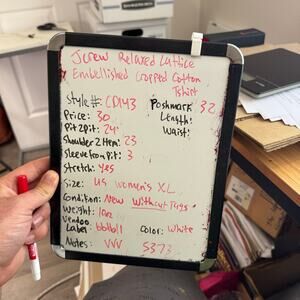 JCrew Relaxed Lattice
Embellished Cropped Cotton
Tshirt
Style #: CD143 Poshmark 32
Price: 30 Length:
Pit 2 pit: 24" Waist:
Shoulder 2 Hem: 23
Sleeve from Pit: 3
Stretch: yes
Size: US Women's XL
Condition: New Without Tags
Weight: 10oz
Vendoo
Label: bblb11 Color: White
Notes: VVV 5373